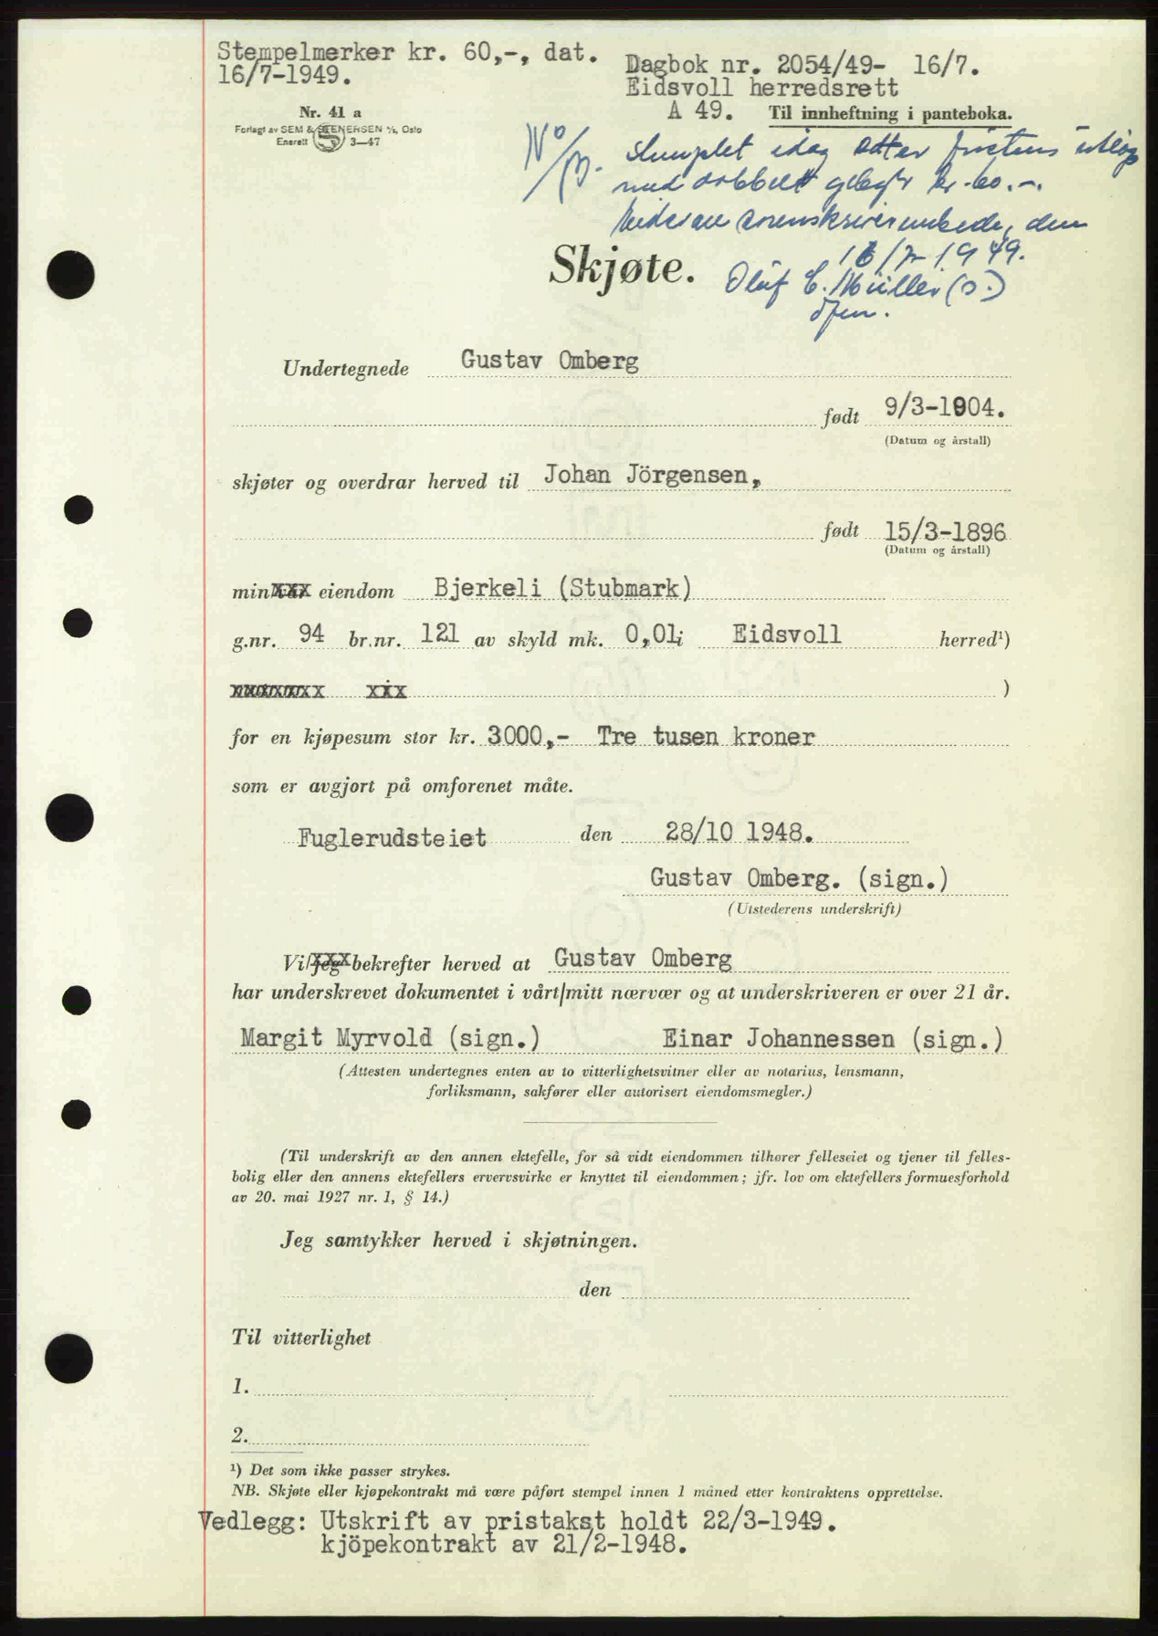 Stempelmerker kr. 60,-, dat.
16/7-1949.
Dagbok nr. 2054/49- 16/7.
Eidsvoll herredsrett
A 49. Til innheftning i panteboka.
Nr. 41 a
Forlagt av SEM & STENERSEN A/S, Oslo
Enerett 3-47
Stemplet idag etter fristens utløp
med dobbelt gebyr kr. 60.-.
sorenskriverembede, den
16/7-1949.
Olaf C. Müller (s.)
Skjøte.
Undertegnede Gustav Omberg
født 9/3-1904.
(Datum og årstall)
skjøter og overdrar herved til Johan Jörgensen,
født 15/3-1896
(Datum og årstall)
min xxx eiendom Bjerkeli (Stubmark)
g.nr. 94 br.nr. 121 av skyld mk. 0,01 i Eidsvoll herred¹)
xxxxxxxx xix )
for en kjøpesum stor kr. 3000,- Tre tusen kroner
som er avgjort på omforenet måte.
Fuglerudsteiet den 28/10 1948.
Gustav Omberg. (sign.)
(Utstederens underskrift)
Vi/jeg bekrefter herved at Gustav Omberg
har underskrevet dokumentet i vårt/mitt nærvær og at underskriveren er over 21 år.
Margit Myrvold (sign.) Einar Johannessen (sign.)
(Attesten undertegnes enten av to vitterlighetsvitner eller av notarius, lensmann,
forliksmann, sakfører eller autorisert eiendomsmegler.)
(Til underskrift av den annen ektefelle, for så vidt eiendommen tilhører felleseiet og tjener til felles-
bolig eller den annens ektefellers ervervsvirke er knyttet til eiendommen; jfr. lov om ektefellers formuesforhold
av 20. mai 1927 nr. 1, § 14.)
Jeg samtykker herved i skjøtningen.
den
Til vitterlighet
1.
2.
¹) Det som ikke passer strykes.
NB. Skjøte eller kjøpekontrakt må være påført stempel innen 1 måned etter kontraktens opprettelse.
Vedlegg: Utskrift av pristakst holdt 22/3-1949.
kjöpekontrakt av 21/2-1948.